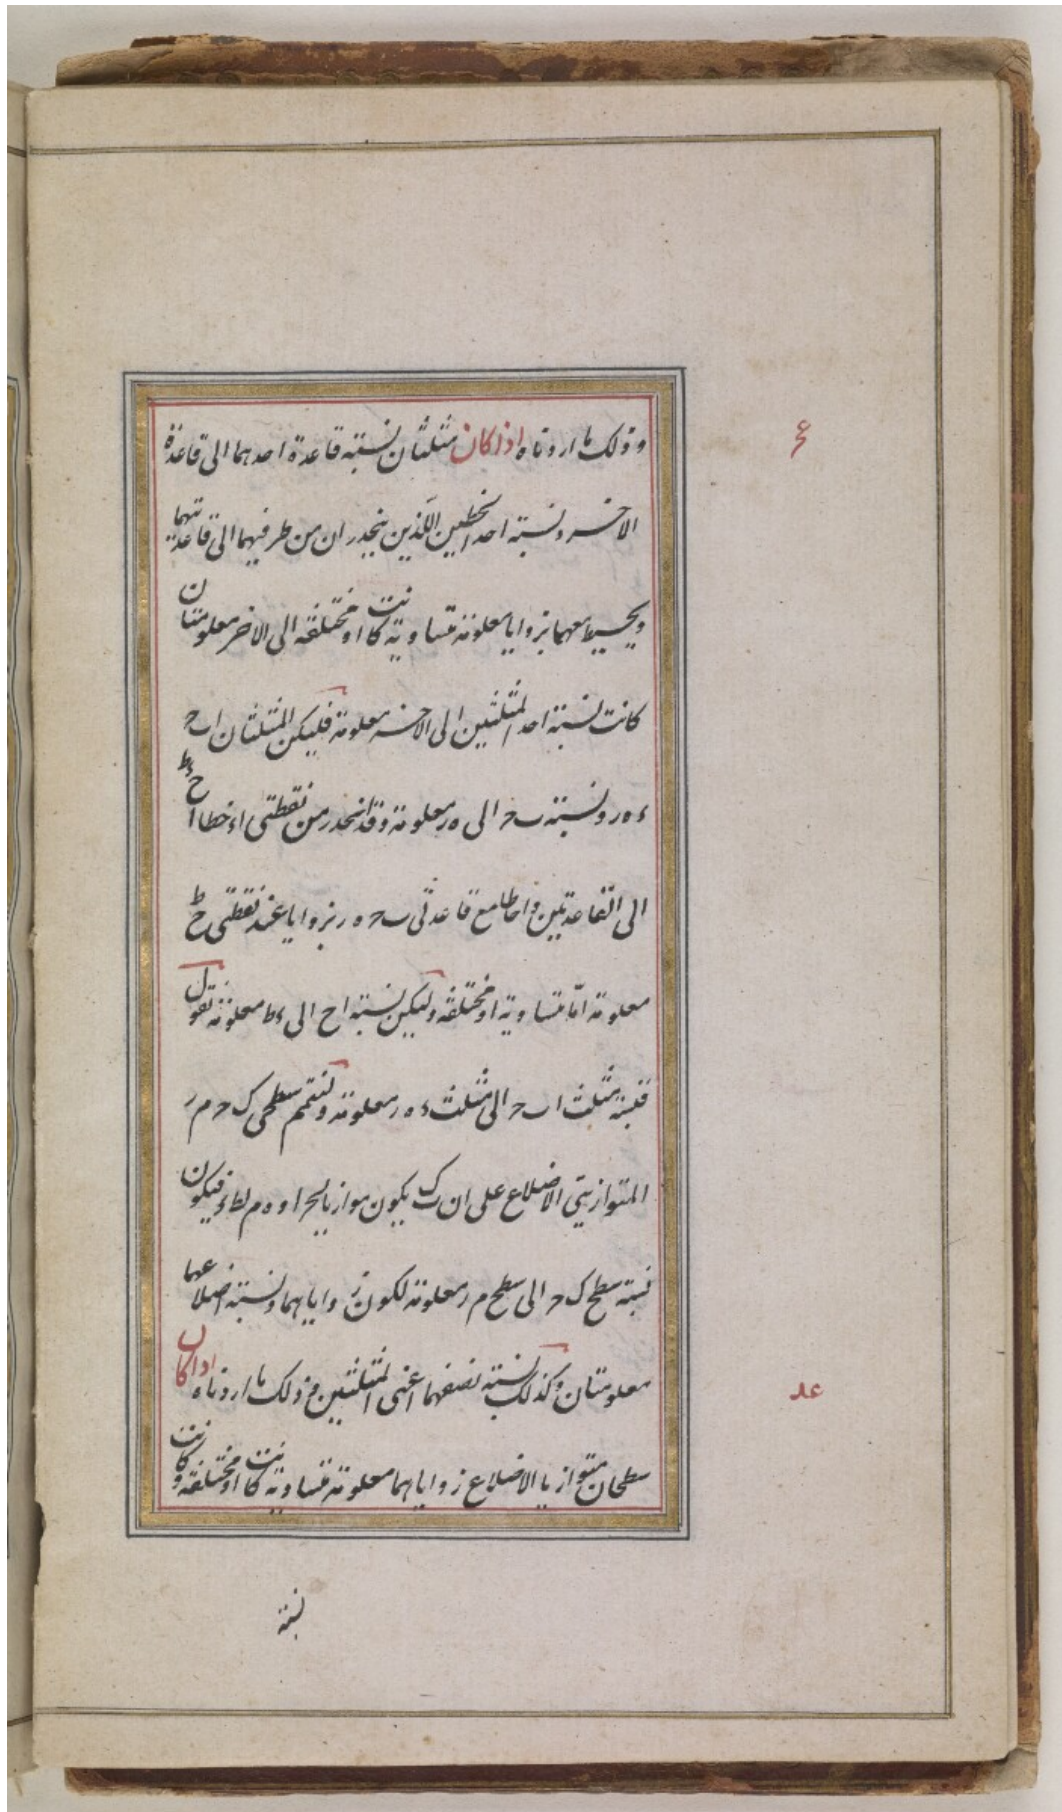 وذلك ما اردناه اذا كان مثلثان نسبة قاعدة احدهما الى قاعدة
الاخر ونسبة احد الخطين اللذين ينحدران من طرفيهما الى قاعدتيهما
ويحيط معهما بزوايا معلومة متساوية كانت او مختلفة الى الاخر معلومتان
كانت نسبة احد المثلثين الى الاخر معلومة فليكن المثلثان ا ب ح
ء ه ر ونسبة ب ح الى ه ر معلومة وقد انحدر من نقطتى ا ء خطا ا ح ء ط
الى القاعدتين واحاطا مع قاعدتى ب ح ه ر بزوايا عند نقطتى ح ط
معلومة اما متساوية او مختلفة وليكن نسبة ا ح الى ء ط معلومة نقول
فنسبة مثلث ا ب ح الى مثلث ء ه ر معلومة ولنتمم سطحى ك ح م ر
المتوازيتى الاضلاع على ان ك ب يكون موازيا لح ا و ه م لط ء فيكون
نسبة سطح ك ح الى سطح م ر معلومة لكون زواياهما ونسبة اضلاعهما
معلومتان وكذلك نسبة نصفهما اعنى المثلثين وذلك ما اردناه اذا كان
سطحان متوازيا الاضلاع زواياهما معلومة متساوية كانت او مختلفة وكانت
نسبة
عج
عد